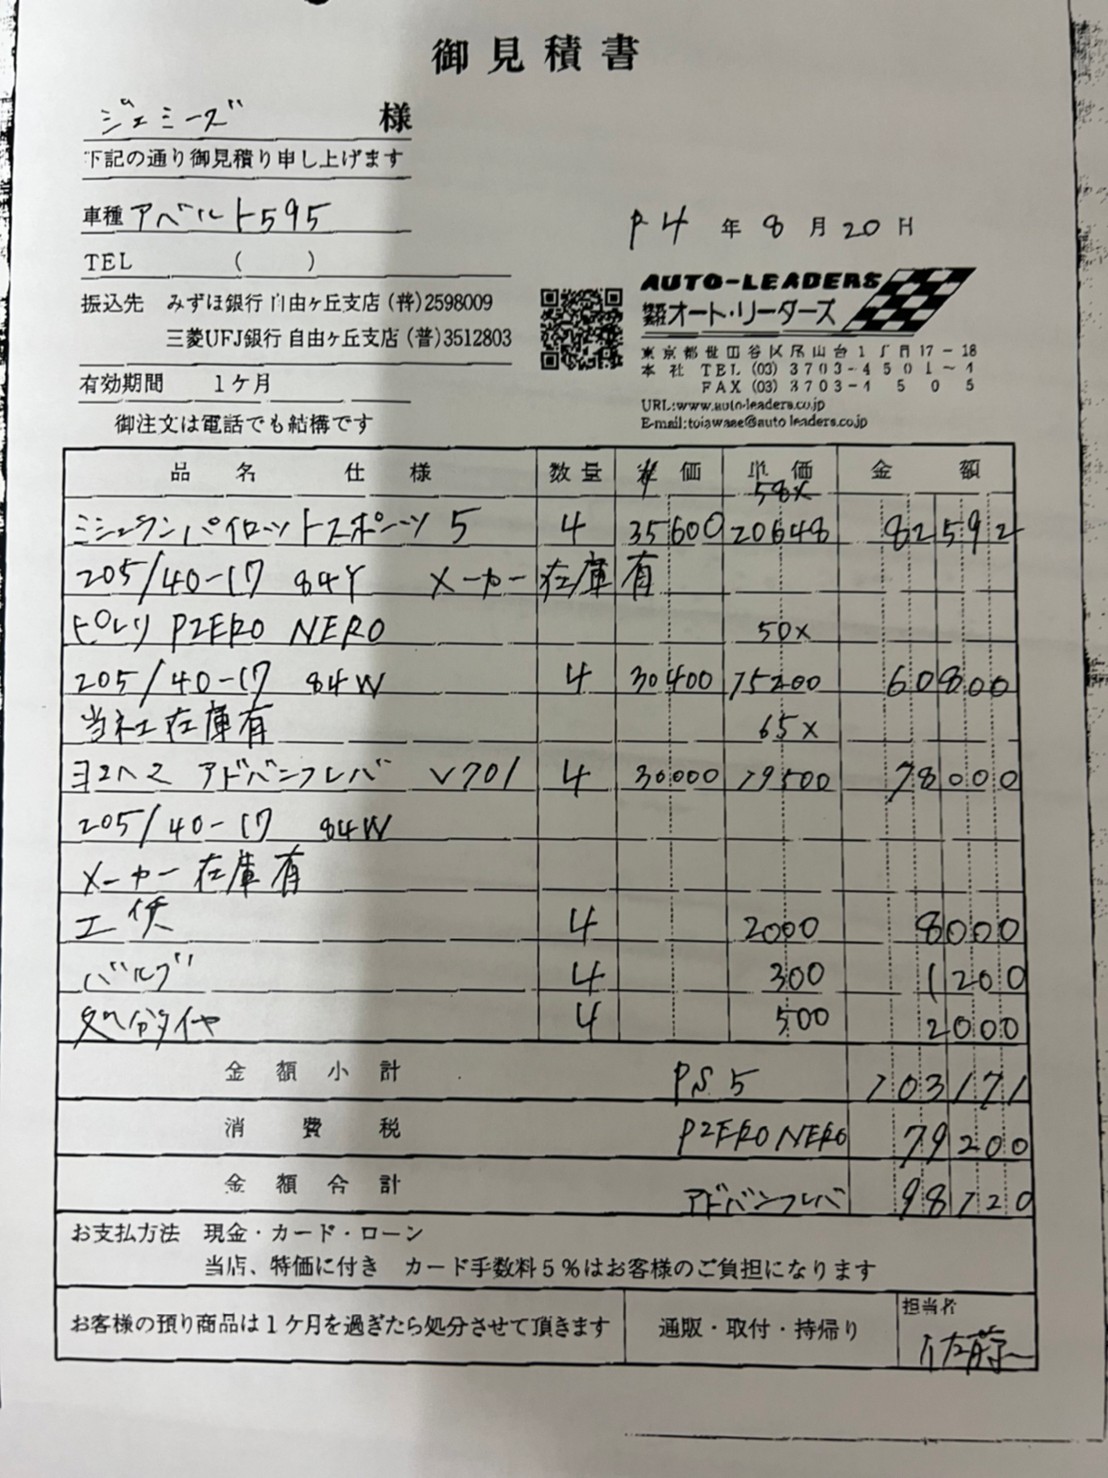 御見積書
ジェミーズ 様
下記の通り御見積り申し上げます
車種 アベルト595
R4 年 8 月 20 日
TEL ( )
振込先 みずほ銀行 自由ヶ丘支店 (普)2598009
三菱UFJ銀行 自由ヶ丘支店 (普)3512803
有効期間 1ケ月
御注文は電話でも結構です
AUTO-LEADERS
株式会社 オート・リーダーズ
東京都世田谷区尾山台1丁目17-18
本社 TEL (03) 3703-4501~4
FAX (03) 3703-4505
URL:www.auto-leaders.co.jp
E-mail:toiawase@auto leaders.co.jp
品名 仕様 数量 単価 単価 金額
58×
ミシュラン パイロットスポーツ 5 4 35600 20648 82592
205/40-17 84Y メーカー在庫有
ピレリ PZERO NERO 50×
205/40-17 84W 4 30400 15200 60800
当社在庫有 65×
ヨコハマ アドバンフレバ V701 4 30000 19500 78000
205/40-17 84W
メーカー在庫有
工賃 4 2000 8000
バルブ 4 300 1200
処分タイヤ 4 500 2000
金額小計 PS5 103171
消費税 PZERO NERO 79200
金額合計 アドバンフレバ 98120
お支払方法 現金・カード・ローン
当店、特価に付き カード手数料5%はお客様のご負担になります
お客様の預り商品は1ケ月を過ぎたら処分させて頂きます 通販・取付・持帰り 担当者 佐藤